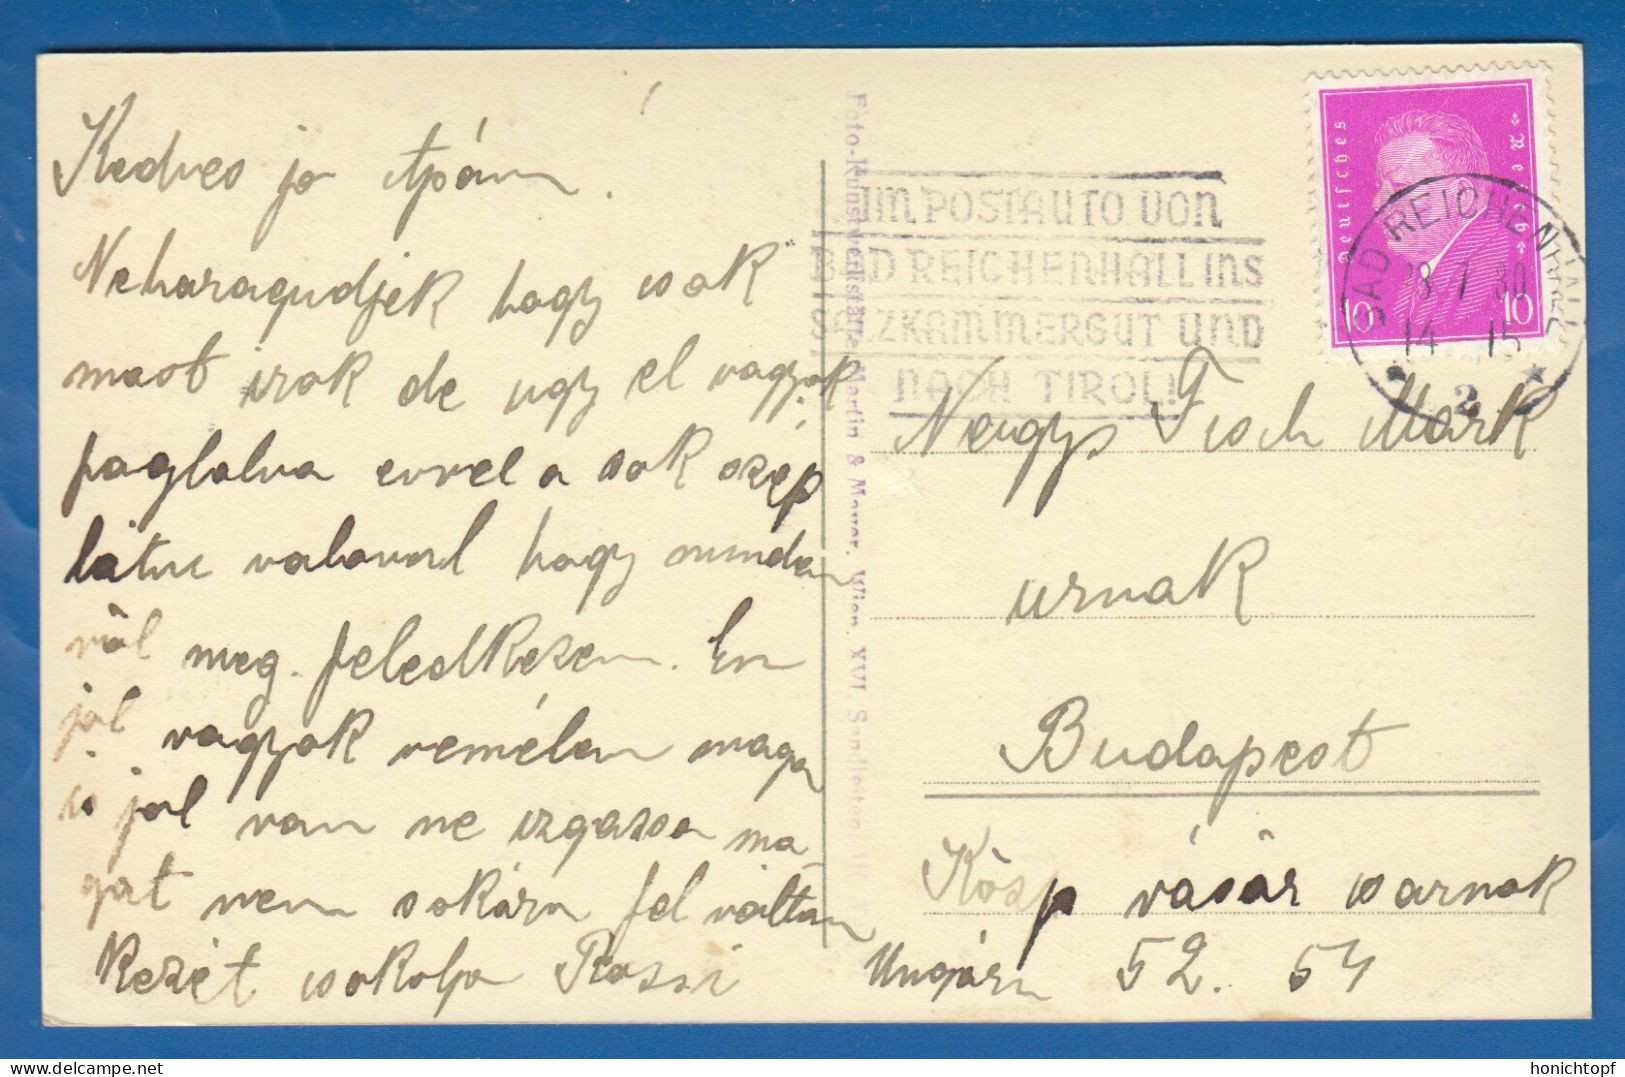 Kedves jo Apám!
Neharagudjek hogy csak
most irok de ugy el vagyok
foglalva evvel a sok szép
látni valoval hogy mindan
röl meg feledkezem. En
jol vagyok remélem maga
is jol van ne izgassa ma
gat nem sokára fel váltam
kezét csokolja Rossi
Foto-Kunstwerkstätte Martin & Mayer, Wien, XVI.
IM POSTAUTO VON
BAD REICHENHALL INS
SALZKAMMERGUT UND
NACH TIROL!
Deutsches Reich
10 10
BAD REICHENHALL
28 7 30
14 15
* 2 *
Nagys Fisch Mark
urnak
Budapest
Közp vásár csarnok
Ungárn 52. 54
honichtopf